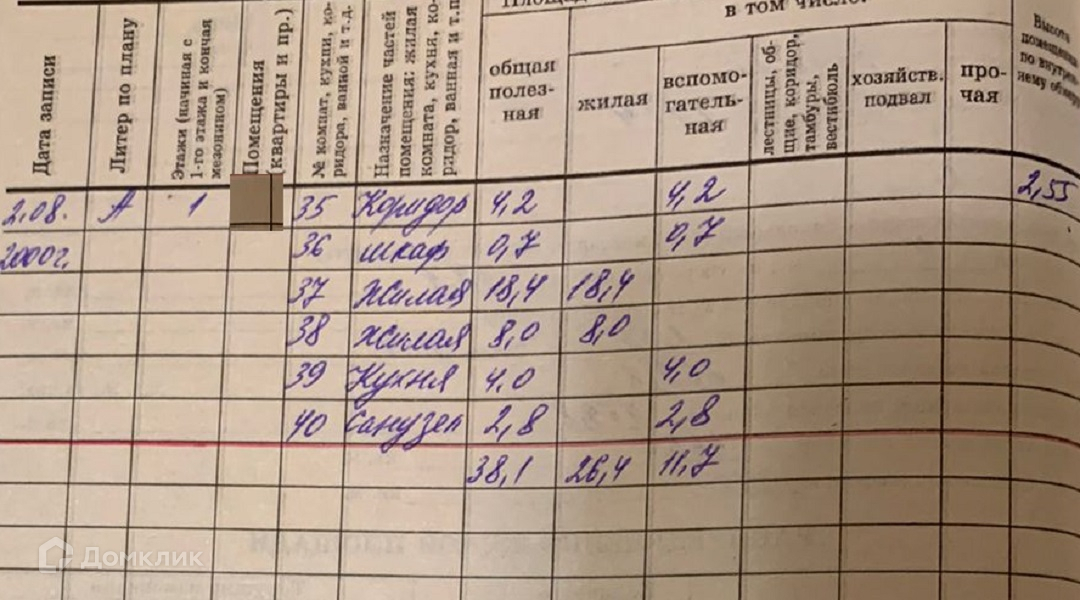 в том числе:
Дата записи
Литер по плану
Этажи (начиная с
1-го этажа и кончая
мезонином)
Помещения
(квартиры и пр.)
№ комнат, кухни, ко-
ридора, ванной и т.д.
Назначение частей
помещения: жилая
комната, кухня, ко-
ридор, ванная и т.п.
общая
полез-
ная
жилая
вспомо-
гатель-
ная
лестницы, об-
щие, коридор,
тамбуры,
вестибюль
хозяйств.
подвал
про-
чая
Высота
помещения
по внутрен-
нему обмеру
2.08. А 1 35 Коридор 4,2 4,2 2,55
2000г. 36 шкаф 0,7 0,7
37 Жилая 18,4 18,4
38 Жилая 8,0 8,0
39 Кухня 4,0 4,0
40 Санузел 2,8 2,8
38,1 26,4 11,7
Домклик